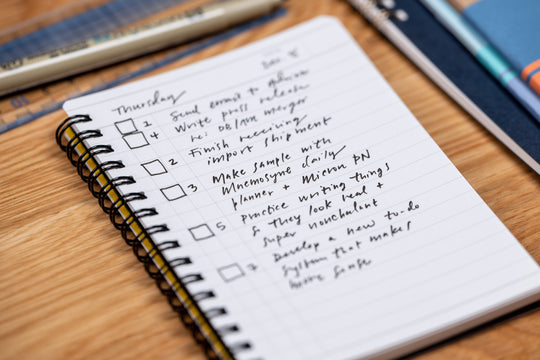 Dec 5
Thursday
1 Send to
4 Write press release
re: merger
2 Finish receiving
import shipment
3 Make sample with
Mnemosyne daily
planner + Micron PN
5 practice writing things
so they look real +
super nonchalant
7 Develop a new to-do
system that makes
more sense